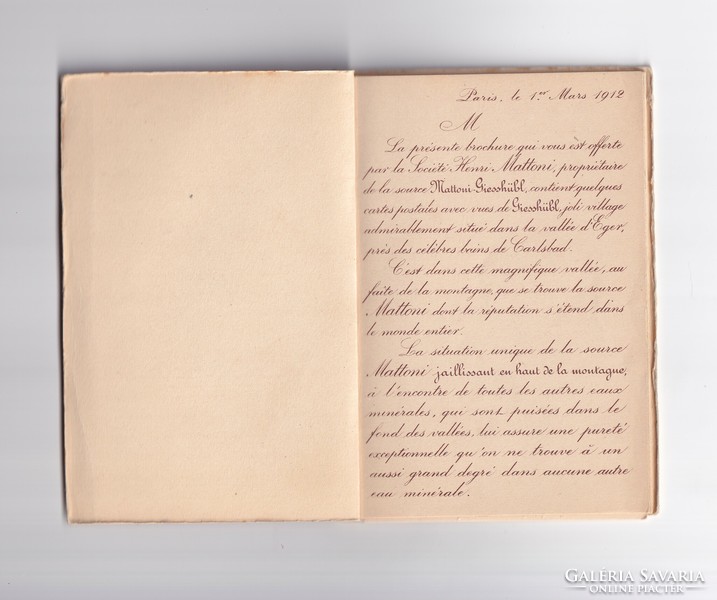 Paris, le 1er Mars 1912
M
La présente brochure qui vous est offerte
par la Société Henri Mattoni, propriétaire
de la source Mattoni-Giesshübl, contient quelques
cartes postales avec vues de Giesshübl, joli village
admirablement situé dans la vallée d'Eger,
près des célèbres bains de Carlsbad.
C'est dans cette magnifique vallée, au
faîte de la montagne, que se trouve la source
Mattoni dont la réputation s'étend dans
le monde entier.
La situation unique de la source
Mattoni jaillissant en haut de la montagne,
à l'encontre de toutes les autres eaux
minérales, qui sont puisées dans le
fond des vallées, lui assure une pureté
exceptionnelle qu'on ne trouve à un
aussi grand degré dans aucune autre
eau minérale.
GALÉRIA SAVARIA
ONLINE PIACTÉR